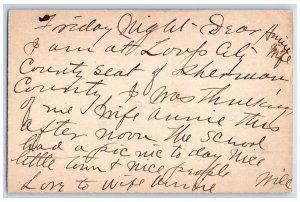 Friday Night - Dear Annie
Wife
I am at Loup City
County seat of Sherman
County, I was thinking
of me Wife annie this
after noon the School
had a picnic to day nice
little town & nice people
Love to Wife annie
Will